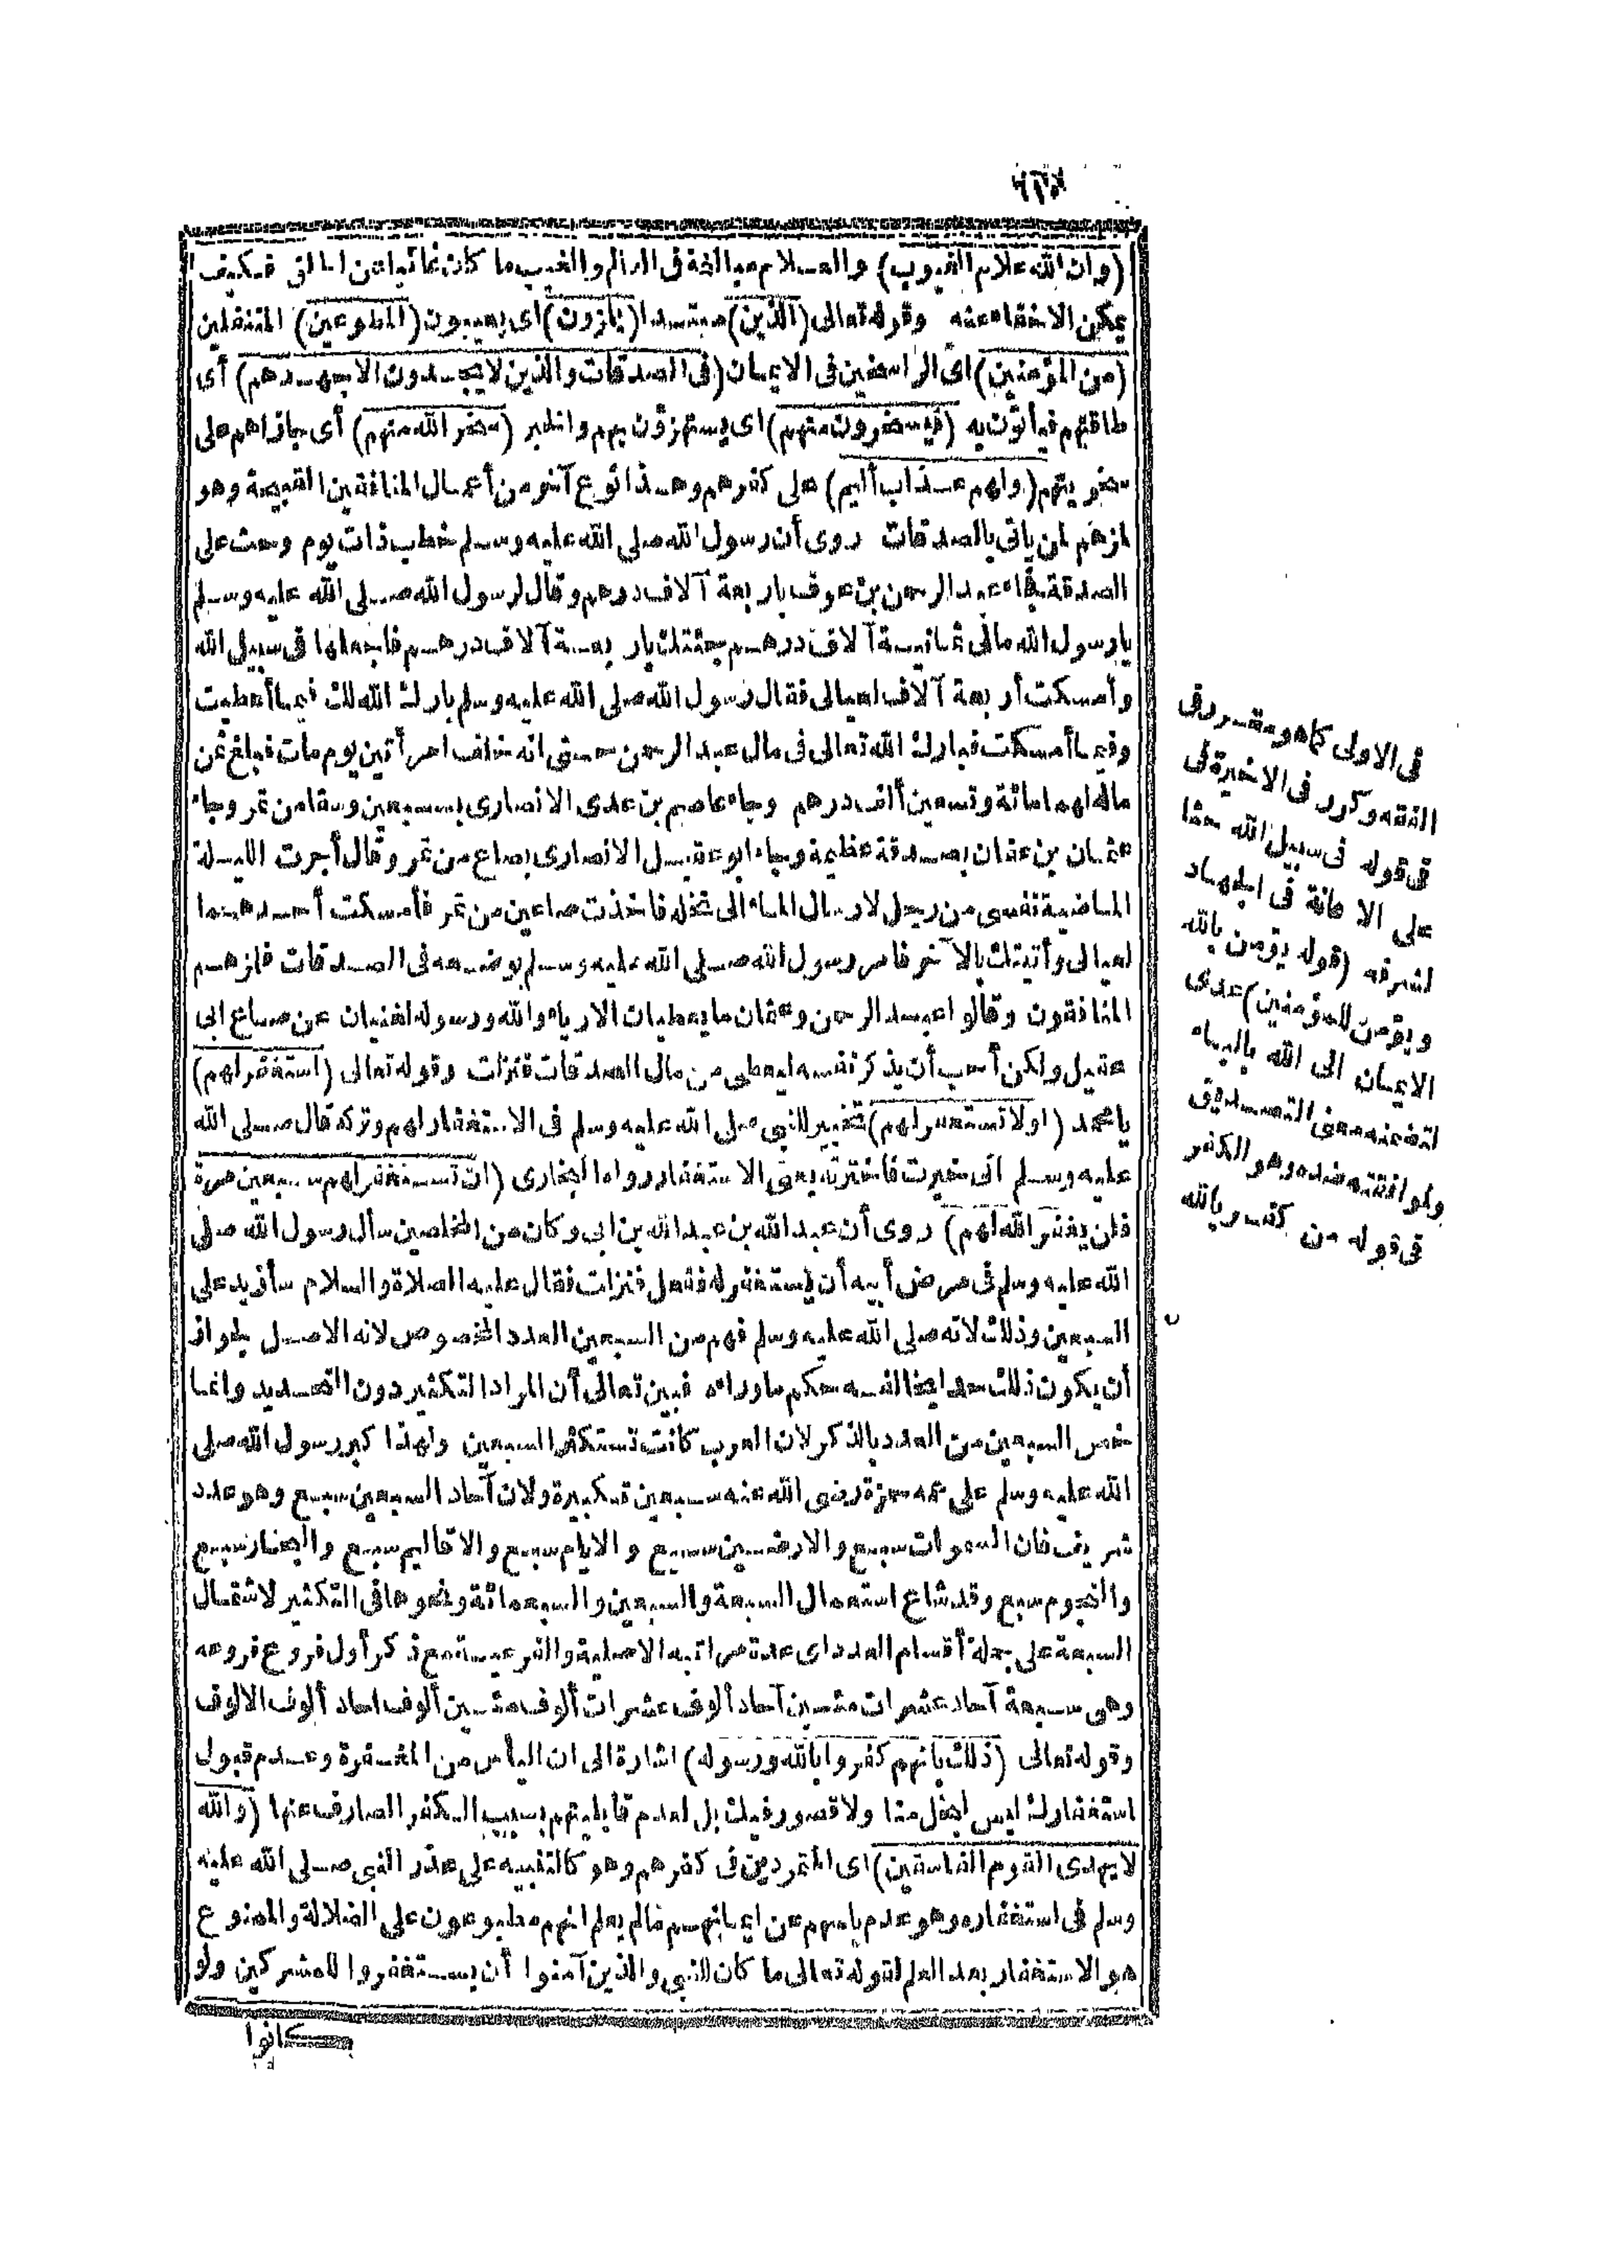 (وان الله علام الغيوب) والعلام مبالغة فى العالم والغيب ما كان غائبا عن الخلق فكيف
يمكن الاختفاء عنه وقوله تعالى (الذين) مبتدا (يلمزون) اى يعيبون (المطوعين) المتنفلين
(من المؤمنين) اى الراسخين فى الايمان (فى الصدقات والذين لايجدون الاجهدهم) أى
طاقتهم فيأتون به (فيسخرون منهم) اى يستهزؤن بهم والخبر (سخر الله منهم) أى جازاهم على
سخريتهم (ولهم عذاب أليم) على كفرهم وهذا نوع آخر من أعمال المنافقين القبيحة وهو
لمزهم لمن يأتى بالصدقات روى أن رسول الله صلى الله عليه وسلم خطب ذات يوم وحث على
الصدقة فجاء عبد الرحمن بن عوف باربعة آلاف درهم وقال لرسول الله صلى الله عليه وسلم
يارسول الله مالى ثمانية آلاف درهم جئتك باربعة آلاف درهم فاجعلها فى سبيل الله
وأمسكت أربعة آلاف لعيالى فقال رسول الله صلى الله عليه وسلم بارك الله لك فيما أعطيت
وفيما أمسكت فبارك الله تعالى فى مال عبد الرحمن حتى انه خلف امرأتين يوم مات فبلغ ثمن
ماله لهما مائة وتسعين ألف درهم وجاء عاصم بن عدى الانصارى بسبعين وسقا من تمر وجاء
عثمان بن عفان بصدقة عظيمة وجاء ابو عقيل الانصارى بصاع من تمر وقال أجرت الليلة
الماضية نفسى من رجل لارسال الماء الى نخله فاخذت صاعين من تمر فأمسكت أحدهما
لعيالى وأتيتك بالآخر فامر رسول الله صلى الله عليه وسلم بوضعه فى الصدقات فلمزهم
المنافقون وقالوا عبد الرحمن وعثمان ما يعطيان الارياء والله ورسوله لغنيان عن صاع ابى
عقيل ولكن أحب أن يذكر نفسه ليعطى من مال الصدقات فنزلت وقوله تعالى (استغفر لهم)
يا محمد (اولا تستغفر لهم) تخيير للنبى صلى الله عليه وسلم فى الاستغفار لهم وتركه قال صلى الله
عليه وسلم انى خيرت فاخترته يعنى الاستغفار رواه البخارى (ان تستغفر لهم سبعين مرة
فلن يغفر الله لهم) روى أن عبد الله بن عبد الله بن ابى وكان من المخلصين سأل رسول الله صلى
الله عليه وسلم فى مرض أبيه أن يستغفر له ففعل فنزلت فقال عليه الصلاة والسلام سأزيد على
السبعين وذلك لانه صلى الله عليه وسلم فهم من السبعين العدد المخصوص لانه الاصل لجواز
أن يكون ذلك حدا يخالفه حكم ماوراءه فبين تعالى أن المراد التكثير دون التحديد وانما
خص السبعين من العدد بالذكر لان العرب كانت تستكثر السبعين ولهذا كبر رسول الله صلى
الله عليه وسلم على عمه حمزة رضى الله عنه سبعين تكبيرة ولان آحاد السبعين سبع وهو عدد
شريف فان السموات سبع والارضين سبع والايام سبع والاقاليم سبع والبحار سبع
والنجوم سبع وقد شاع استعمال السبعة والسبعين والسبعمائة ونحوها فى التكثير لاشتمال
السبعة على جملة أقسام العدد اى عدة مراتبه الاصلية والفرعية مع ذكر أول فروع فروعه
وهى سبعة آحاد عشرات مئين آحاد ألوف عشرات ألوف مئين ألوف احاد ألوف الالوف
وقوله تعالى (ذلك بأنهم كفروا بالله ورسوله) اشارة الى ان اليأس من المغفرة وعدم قبول
استغفارك ليس لبخل منا ولا قصور فيك بل لعدم قابليتهم بسبب الكفر الصارف عنها (والله
لايهدى القوم الفاسقين) اى المتمردين فى كفرهم وهو كالتنبيه على عذر النبى صلى الله عليه
وسلم فى استغفاره وهو عدم يأسهم عن ايمانهم مالم يعلم انهم مطبوعون على الضلالة والممنوع
هو الاستغفار بعد العلم لقوله تعالى ما كان للنبى والذين آمنوا أن يستغفروا للمشركين ولو
كانوا
فى الاولى كما هو مقرر فى
الفقه وكرر فى الاخيرة فى
فى قوله فى سبيل الله حثا
على الاعانة فى الجهاد
لشرفه (قوله يؤمن بالله
ويؤمن للمؤمنين) عدى
الايمان الى الله بالباء
لتضمنه معنى التصديق
ولموافقته ضده وهو الكفر
فى قوله من كفر بالله